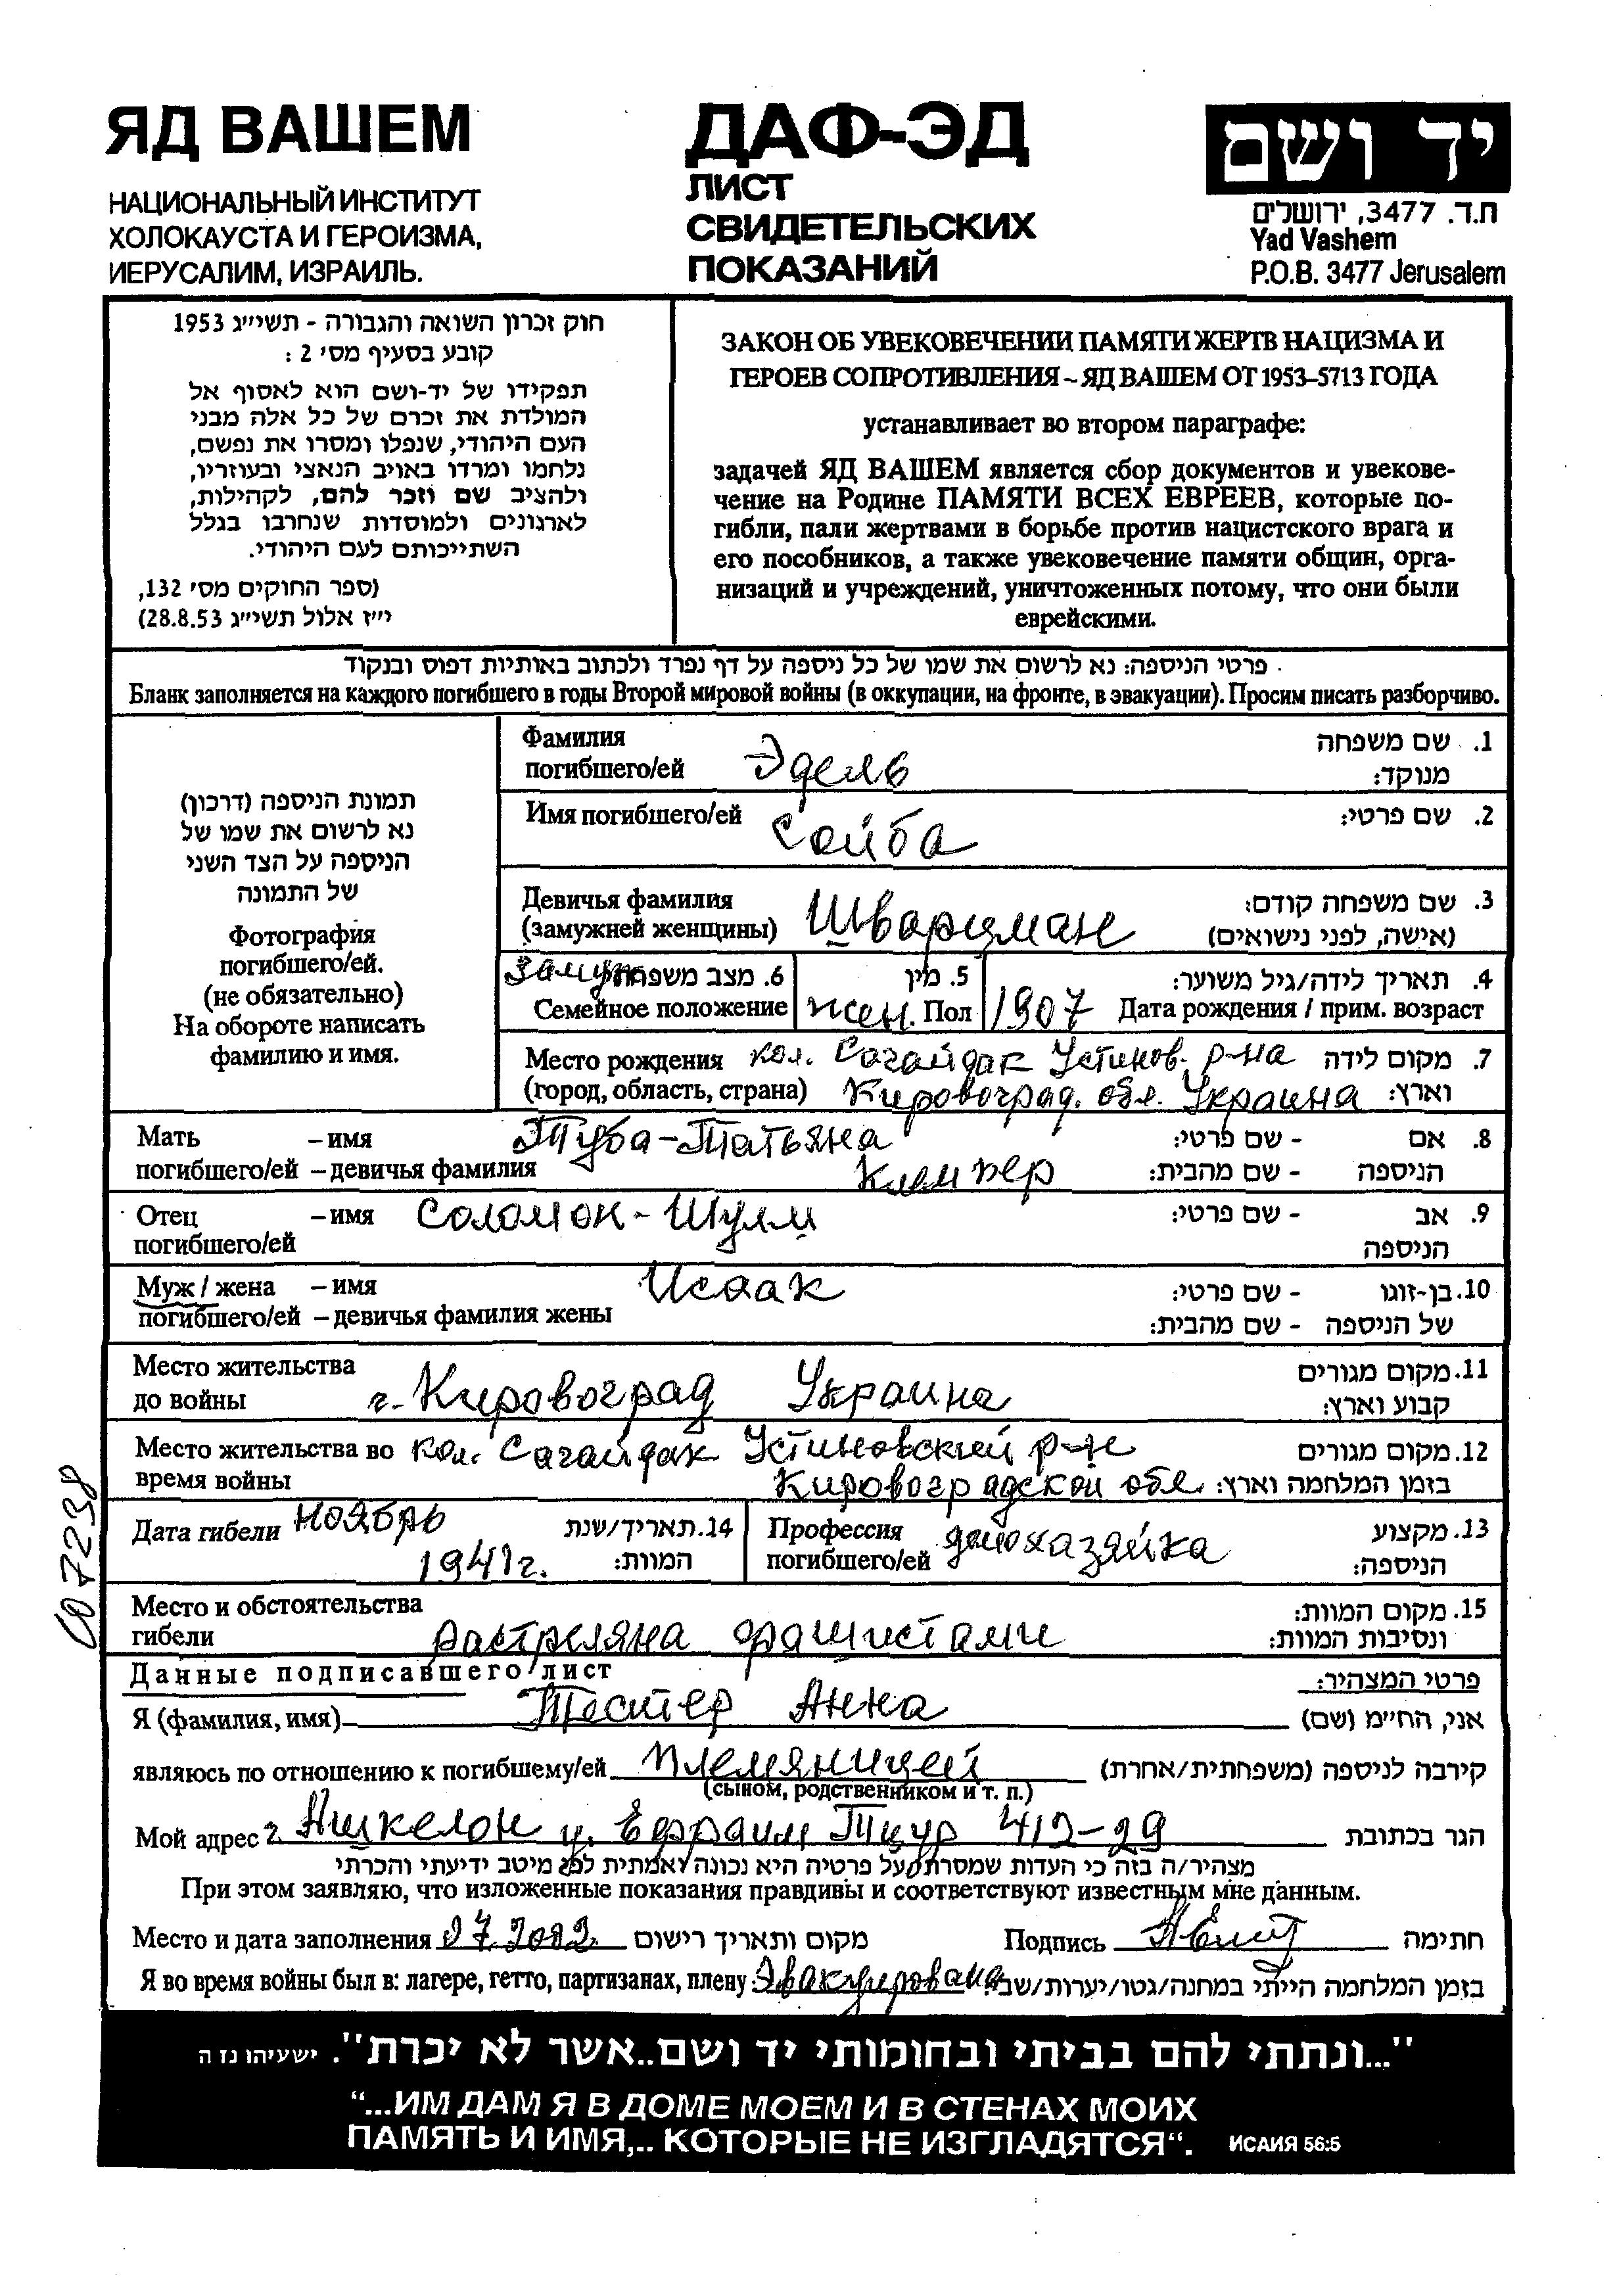 ЯД ВАШЕМ
НАЦИОНАЛЬНЫЙ ИНСТИТУТ
ХОЛОКАУСТА И ГЕРОИЗМА,
ИЕРУСАЛИМ, ИЗРАИЛЬ.
ДАФ-ЭД
ЛИСТ
СВИДЕТЕЛЬСКИХ
ПОКАЗАНИЙ
יד ושם
ת.ד. 3477, ירושלים
Yad Vashem
P.O.B. 3477 Jerusalem
חוק זכרון השואה והגבורה - תשי״ג 1953
קובע בסעיף מס׳ 2 :
תפקידו של יד-ושם הוא לאסוף אל
המולדת את זכרם של כל אלה מבני
העם היהודי, שנפלו ומסרו את נפשם,
נלחמו ומרדו באויב הנאצי ובעוזריו,
ולהציב שם וזכר להם, לקהילות,
לארגונים ולמוסדות שנחרבו בגלל
השתייכותם לעם היהודי.
(ספר החוקים מס׳ 132,
י״ז אלול תשי״ג 28.8.53)
ЗАКОН ОБ УВЕКОВЕЧЕНИИ ПАМЯТИ ЖЕРТВ НАЦИЗМА И
ГЕРОЕВ СОПРОТИВЛЕНИЯ – ЯД ВАШЕМ ОТ 1953–5713 ГОДА
устанавливает во втором параграфе:
задачей ЯД ВАШЕМ является сбор документов и увекове-
чение на Родине ПАМЯТИ ВСЕХ ЕВРЕЕВ, которые по-
гибли, пали жертвами в борьбе против нацистского врага и
его пособников, а также увековечение памяти общин, орга-
низаций и учреждений, уничтоженных потому, что они были
еврейскими.
פרטי הניספה: נא לרשום את שמו של כל ניספה על דף נפרד ולכתוב באותיות דפוס ובנקוד
Бланк заполняется на каждого погибшего в годы Второй мировой войны (в оккупации, на фронте, в эвакуации). Просим писать разборчиво.
תמונת הניספה (דרכון)
נא לרשום את שמו של
הניספה על הצד השני
של התמונה
Фотография
погибшего/ей.
(не обязательно)
На обороте написать
фамилию и имя.
Фамилия 1. שם משפחה
погибшего/ей Эдель מנוקד:
Имя погибшего/ей Сойба 2. שם פרטי:
Девичья фамилия 3. שם משפחה קודם:
(замужней женщины) Шварцман (אישה, לפני נישואים)
Замуж 6. מצב משפחתי 5. מין 4. תאריך לידה/גיל משוער:
Семейное положение жен. Пол 1907 Дата рождения / прим. возраст
Место рождения кол. Сагайдак Устинов. р-на 7. מקום לידה
(город, область, страна) Кировоград. обл. Украина וארץ:
Мать – имя Туба-Татьяна 8. אם - שם פרטי:
погибшего/ей – девичья фамилия Клемпер הניספה - שם מהבית:
Отец – имя Соломон-Шулим 9. אב - שם פרטי:
погибшего/ей הניספה
Муж / жена – имя Исаак 10. בן-זוגו - שם פרטי:
погибшего/ей – девичья фамилия жены של הניספה - שם מהבית:
Место жительства 11. מקום מגורים
до войны г. Кировоград Украина קבוע וארץ:
Место жительства во кол. Сагайдак Устиновский р-н 12. מקום מגורים
время войны Кировоградской обл. בזמן המלחמה וארץ:
Дата гибели ноябрь 14. תאריך/שנת Профессия домохазяйка 13. מקצוע
1941г. המוות: погибшего/ей הניספה:
Место и обстоятельства 15. מקום המוות:
гибели растреляна фашистами ונסיבות המוות:
Данные подписавшего лист פרטי המצהיר:
Я (фамилия, имя) Тестер Анна אני, החי״מ (שם)
являюсь по отношению к погибшему/ей племяницей קירבה לניספה (משפחתית/אחרת)
(сыном, родственником и т. п.)
Мой адрес г. Ашкелон у. Ефраим Тцур 412-29 הגר בכתובת
מצהיר/ה בזה כי העדות שמסרתי על פרטיה היא נכונה ואמתית לפי מיטב ידיעתי והכרתי
При этом заявляю, что изложенные показания правдивы и соответствуют известным мне данным.
Место и дата заполнения מקום ותאריך רישום Подпись חתימה
Я во время войны был в: лагере, гетто, партизанах, плену: Эвакуирована בזמן המלחמה הייתי במחנה/גטו/יערות/שבי:
"...ונתתי להם בביתי ובחומותי יד ושם..אשר לא יכרת". ישעיהו נז ה
“...ИМ ДАМ Я В ДОМЕ МОЕМ И В СТЕНАХ МОИХ
ПАМЯТЬ И ИМЯ,.. КОТОРЫЕ НЕ ИЗГЛАДЯТСЯ“. ИСАИЯ 56:5